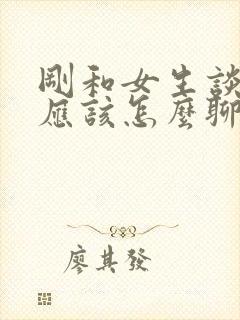 剛和女生談
應該怎麼聊
廖其發